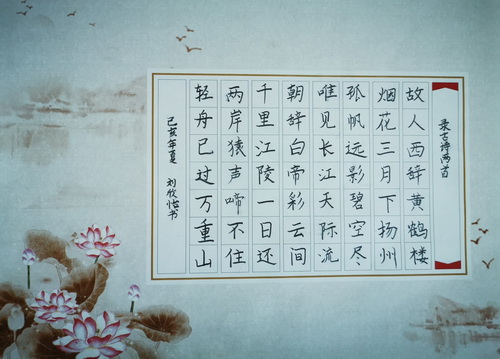 录古诗两首
故人西辞黄鹤楼
烟花三月下扬州
孤帆远影碧空尽
唯见长江天际流
朝辞白帝彩云间
千里江陵一日还
两岸猿声啼不住
轻舟已过万重山
己亥年夏 刘攸怡书